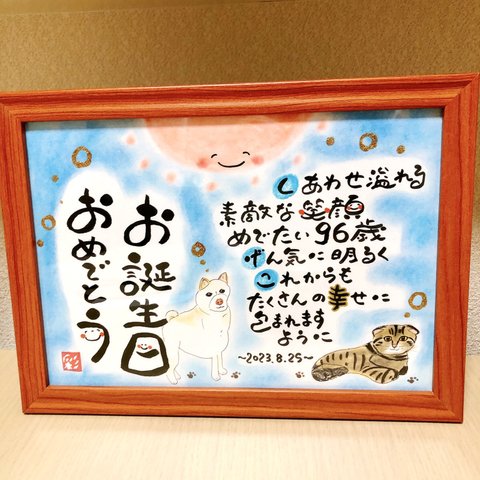 お誕生日
おめでとう
しあわせ溢れる
素敵な笑顔
めでたい96歳
げん気に明るく
これからも
たくさんの幸せに
包まれます
ように
~2023.8.25~